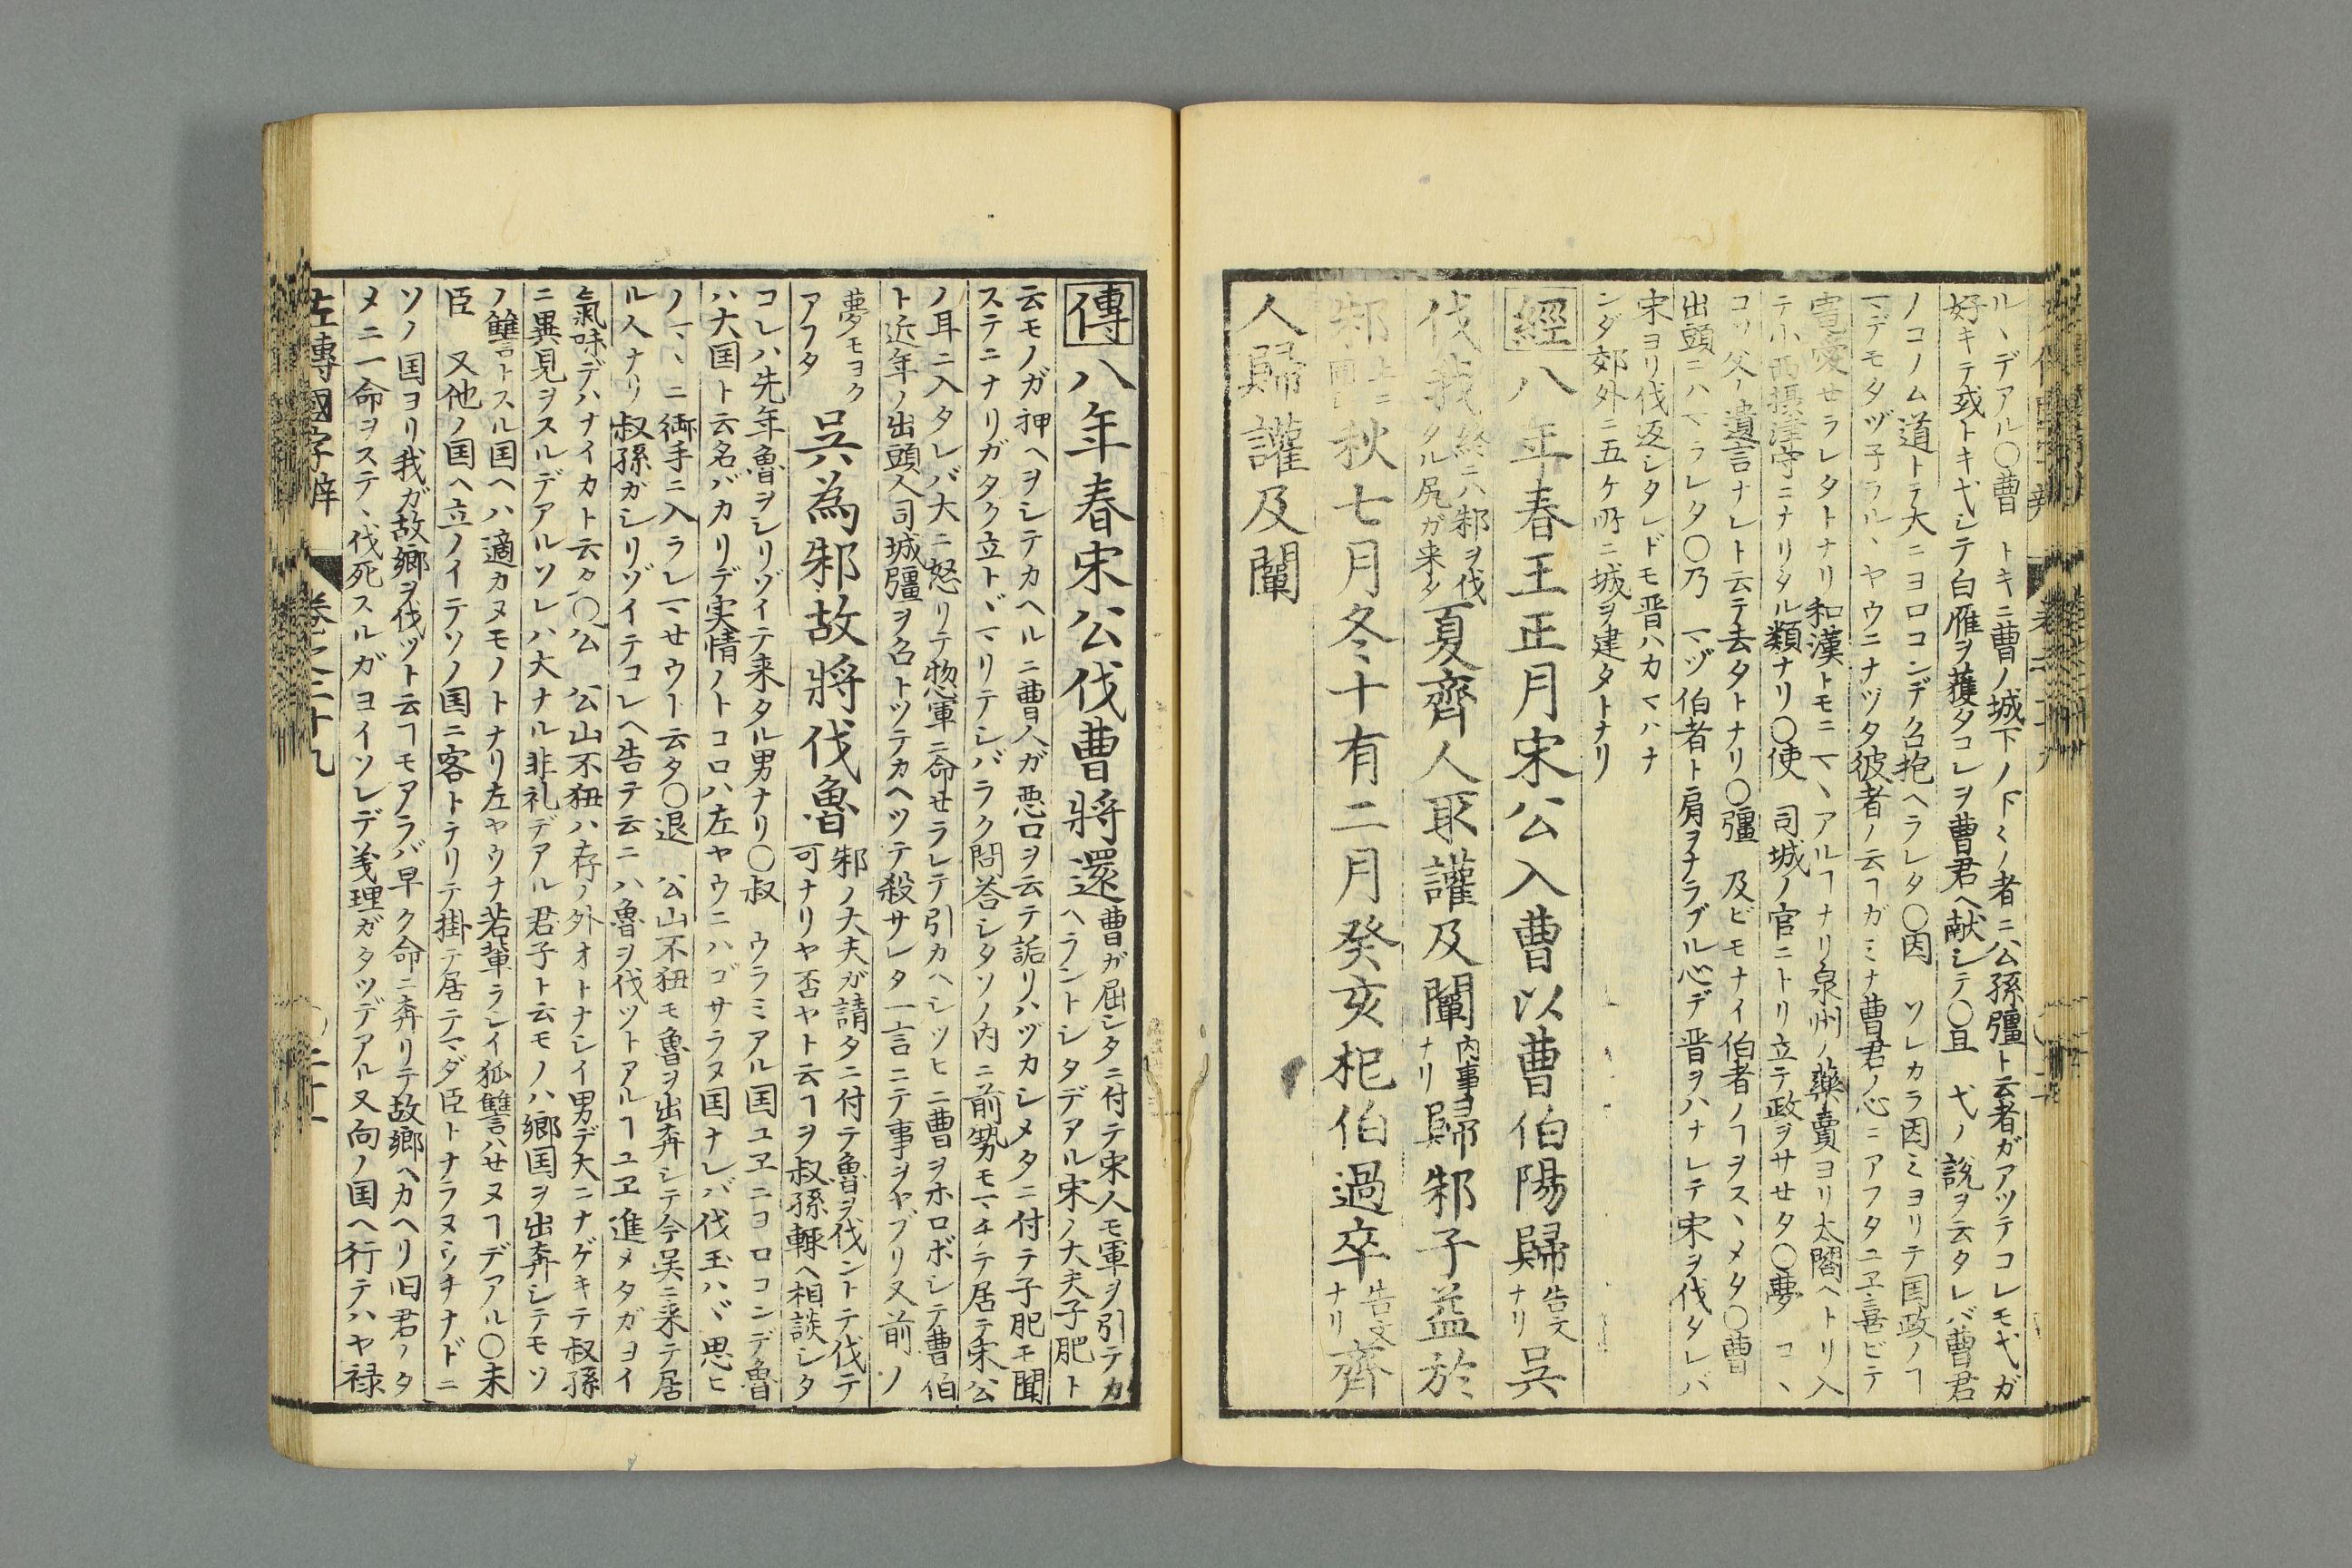 ルヽデアル〇曹　トキニ曹ノ城下ノ下〻ノ者ニ公孫彊ト云者ガアツテコレモ弋ガ
好キテ或トキ弋シテ白雁ヲ獲タコレヲ曹君ヘ献シテ〇且　弋ノ説ヲ云タレバ曹君
ノコノム道トテ大ニヨロコンデ召抱ヘラレタ〇因　ソレカラ因ミヨリテ国政ノヿ
マデモタヅ子ラルヽヤウニナヅタ彼者ノ云ヿガミナ曹君ノ心ニアフタユヱ喜ビテ
寵愛セラレタトナリ和漢トモニマヽアルヿナリ泉州ノ薬賣ヨリ太閤ヘトリ入
テ小西摂津守ニナリタル類ナリ〇使　司城ノ官ニトリ立テ政ヲサセタ〇夢　コヽ
コソ父ノ遺言ナレト云テ去タトナリ〇彊　及ビモナイ伯者ノヿヲスヽメタ〇曹
出頭ニハマラレタ〇乃　マヅ伯者ト肩ヲナラブル心デ晋ヲハナレテ宋ヲ伐タレバ
宋ヨリ伐返シタレドモ晋ハカマハナ
ンダ郊外ニ五ケ所ニ城ヲ建タトナリ
經八年春王正月宋公入曹以曹伯陽歸告文ナリ吳
伐我終ニハ邾ヲ伐タル尻ガ来タ夏齊人取讙及闡内事ヨナリ歸邾子益於
邾秋七月冬十有二月癸亥杞伯過卒告文ナリ齊
人歸讙及闡
傳八年春宋公伐曹將還曹ガ屈シタニ付テ宋人モ軍ヲ引テカヘラントシタデアル宋ノ大夫子肥ト
云モノガ押ヘヲシテカヘルニ曹人ガ悪口ヲ云テ詬リハヅカシメタニ付テ子肥モ聞
ステニナリガタク立トヾマリテシバラク問答シタソノ内ニ前勢モマチテ居テ宋公
ノ耳ニ入タレバ大ニ怒リテ惣軍ニ命セラレテ引カヘシツヒニ曹ヲホロボシテ曹伯
ト近年ノ出頭人司城彊ヲ召トツテカヘツテ殺サレタ一言ニテ事ヲヤブリ又前ノ
夢モヨクアフタ　吳為邾故將伐魯邾ノ大夫ガ請タニ付テ魯ヲ伐ントテ伐テ可ナリヤ否ヤト云ヿヲ叔孫輒ヘ相談シタ
コレハ先年魯ヲシリゾイテ来タル男ナリ〇叔　ウラミアル国ユヱニヨロコンデ魯
ハ大国ト云名バカリデ実情ノトコロハ左ヤウニハゴサラヌ国ナレバ伐玉ハヾ思ヒ
ノマヽニ御手ニ入ラレマセウト云タ〇退　公山不狃モ魯ヲ出奔シテ今吳ニ来テ居
ル人ナリ叔孫ガシリゾイテコレヘ告テ云ニハ魯ヲ伐ツトアルヿユヱ進メタガヨイ
氣味デハナイカト云々〇公　公山不狃ハ存ノ外オトナシイ男デ大ニナゲキテ叔孫
ニ異見ヲスルデアルソレハ大ナル非礼デアル君子ト云モノハ郷国ヲ出奔シテモソ
ノ讎トスル国ヘハ適カヌモノトナリ左ヤウナ若輩ラシイ狐讐ハセヌヿデアル〇未
臣　又他ノ国ヘ立ノイテソノ国ニ客トテリテ掛テ居テマダ臣トナラヌウチナドニ
ソノ国ヨリ我ガ故郷ヲ伐ツト云ヿモアラバ早ク命ニ奔リテ故郷ヘカヘリ旧君ノタ
メニ一命ヲステヽ伐死スルガヨイソレデ義理ガタツデアル又向ノ国ヘ行テハヤ禄
左傳國字辨　卷之三十九　二十一